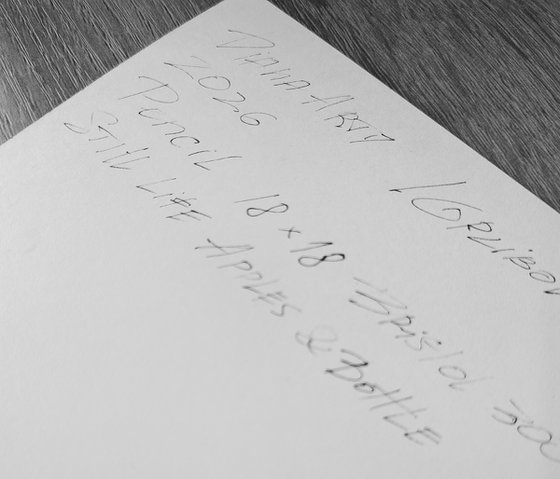 Diana Arty /Grlibov
2026
Pencil 18 x 18 Bristol 300
Still Life Apples & Bottle